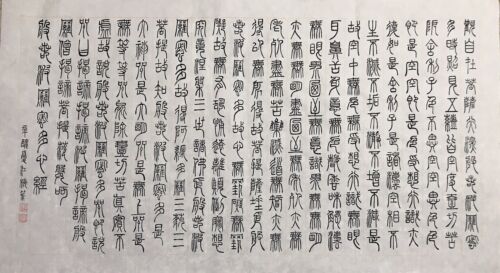 觀自在菩薩行深般若波羅蜜
多時照見五蘊皆空度一切苦
厄舍利子色不異空空不異色
色即是空空即是色受想行識亦
復如是舍利子是諸法空相不
生不滅不垢不淨不增不減是
故空中無色無受想行識無眼
耳鼻舌身意無色聲香味觸法
無眼界乃至無意識界無無明
亦無無明盡乃至無老死亦無
老死盡無苦集滅道無智亦無
得以無所得故菩提薩埵依般
若波羅蜜多故心無罣礙無罣
礙故無有恐怖遠離顛倒夢想
究竟涅槃三世諸佛依般若波
羅蜜多故得阿耨多羅三藐三
菩提故知般若波羅蜜多是
大神咒是大明咒是無上咒是
無等等咒能除一切苦真實不
虛故說般若波羅蜜多咒即說
咒曰揭諦揭諦波羅揭諦波
羅僧揭諦菩提薩婆訶
般若波羅蜜多心經